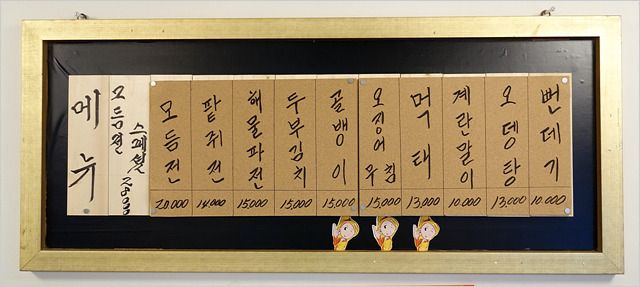 메뉴
모듬전
스페셜 28000
모듬전
20,000
팥쥐전
14,000
해물파전
15,000
두부김치
15,000
골뱅이
15,000
오징어
무침
15,000
먹태
13,000
계란말이
10,000
오뎅탕
13,000
뻔데기
10,000